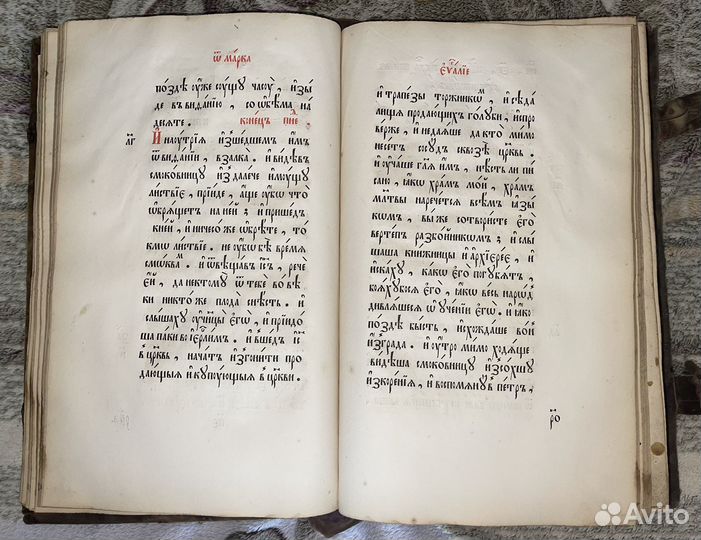 ѿ ма́рка
по́здѣ оу҆́же сꙋ́щꙋ часꙋ̀, и҆зы́
де въ виѳа́нїю, со ѻ҆бѣ́ма на
десѧте. коне́цъ
л҃г И҆ наꙋ́трїѧ и҆зше́дшемъ и҆̀мъ
ѿ виѳа́нїи, взалка̀. и҆ ви́дѣвъ
смоко́вницꙋ и҆здале́че и҆мꙋ́щꙋ
ли́ствїе, прїи́де, а҆́ще оу҆́бѡ что̀
ѡ҆брѧ́щетъ на не́й; и҆ прише́дъ
к не́й, и҆ ничесо́же ѡ҆брѣ́те, то́
кмѡ ли́ствїе. не оу҆́ бо бѣ̀ вре́мѧ
смо́квамъ. и҆ ѿвѣща́въ і҆с҃ъ, речѐ
е҆́й, да не ктомꙋ̀ ѿ тебѐ во вѣ́
ки никто́же плода̀ снѣ́стъ. и҆
слы́шахꙋ оу҆ч҃нцы̀ е҆гѡ̀, и҆ прїидо́
ша па́ки во і҆ер҃ли́мъ. и҆ вше́дъ і҆с҃ъ
в цр҃ковь, нача́тъ и҆згони́ти про
даю́щыѧ и҆ кꙋпꙋ́ющыѧ в цр҃кви.
є҆ѵⷢ҇а́лїе
и҆ трапе́зы торжникѡ́мъ, и҆ сѣда́
лища продаю́щихъ го́лꙋби, и҆спро
ве́рже, и҆ недаѧ́ше да кто̀ ми́мо
несе́тъ сосꙋ́дъ сквозѣ̀ цр҃ковь.
и҆ оу҆ча́ше гл҃ѧ и҆̀мъ, нѣ́сть ли пи́
сано, ꙗ҆́кѡ хра́мъ мо́й, хра́мъ
мл҃твы нарече́тсѧ всѣ́мъ ꙗ҆зы́
кѡмъ, вы́ же сотвори́сте є҆го̀
верте́пъ разбо́йникѡмъ; и҆ слы́
шаша кни́жницы и҆ а҆рхїере́є, и҆
и҆ска́хꙋ, ка́кѡ є҆го̀ погꙋбѧ́тъ,
боѧ́хꙋбосѧ є҆гѡ̀, ꙗ҆́кѡ ве́сь наро́дъ
дивлѧ́шесѧ ѡ҆ оу҆че́нїи є҆гѡ̀. и҆ ꙗ҆́ко
по́здѣ бы́сть, и҆схожда́ше во́нъ
и҆згра́да. и҆ оу҆́тро ми́мо ходѧ́ще
ви́дѣша смоко́вницꙋ и҆́зсохшꙋ
и҆з коре́нїѧ, и҆ воспомѧнꙋ́въ пе́тръ,
р҃о
Avito